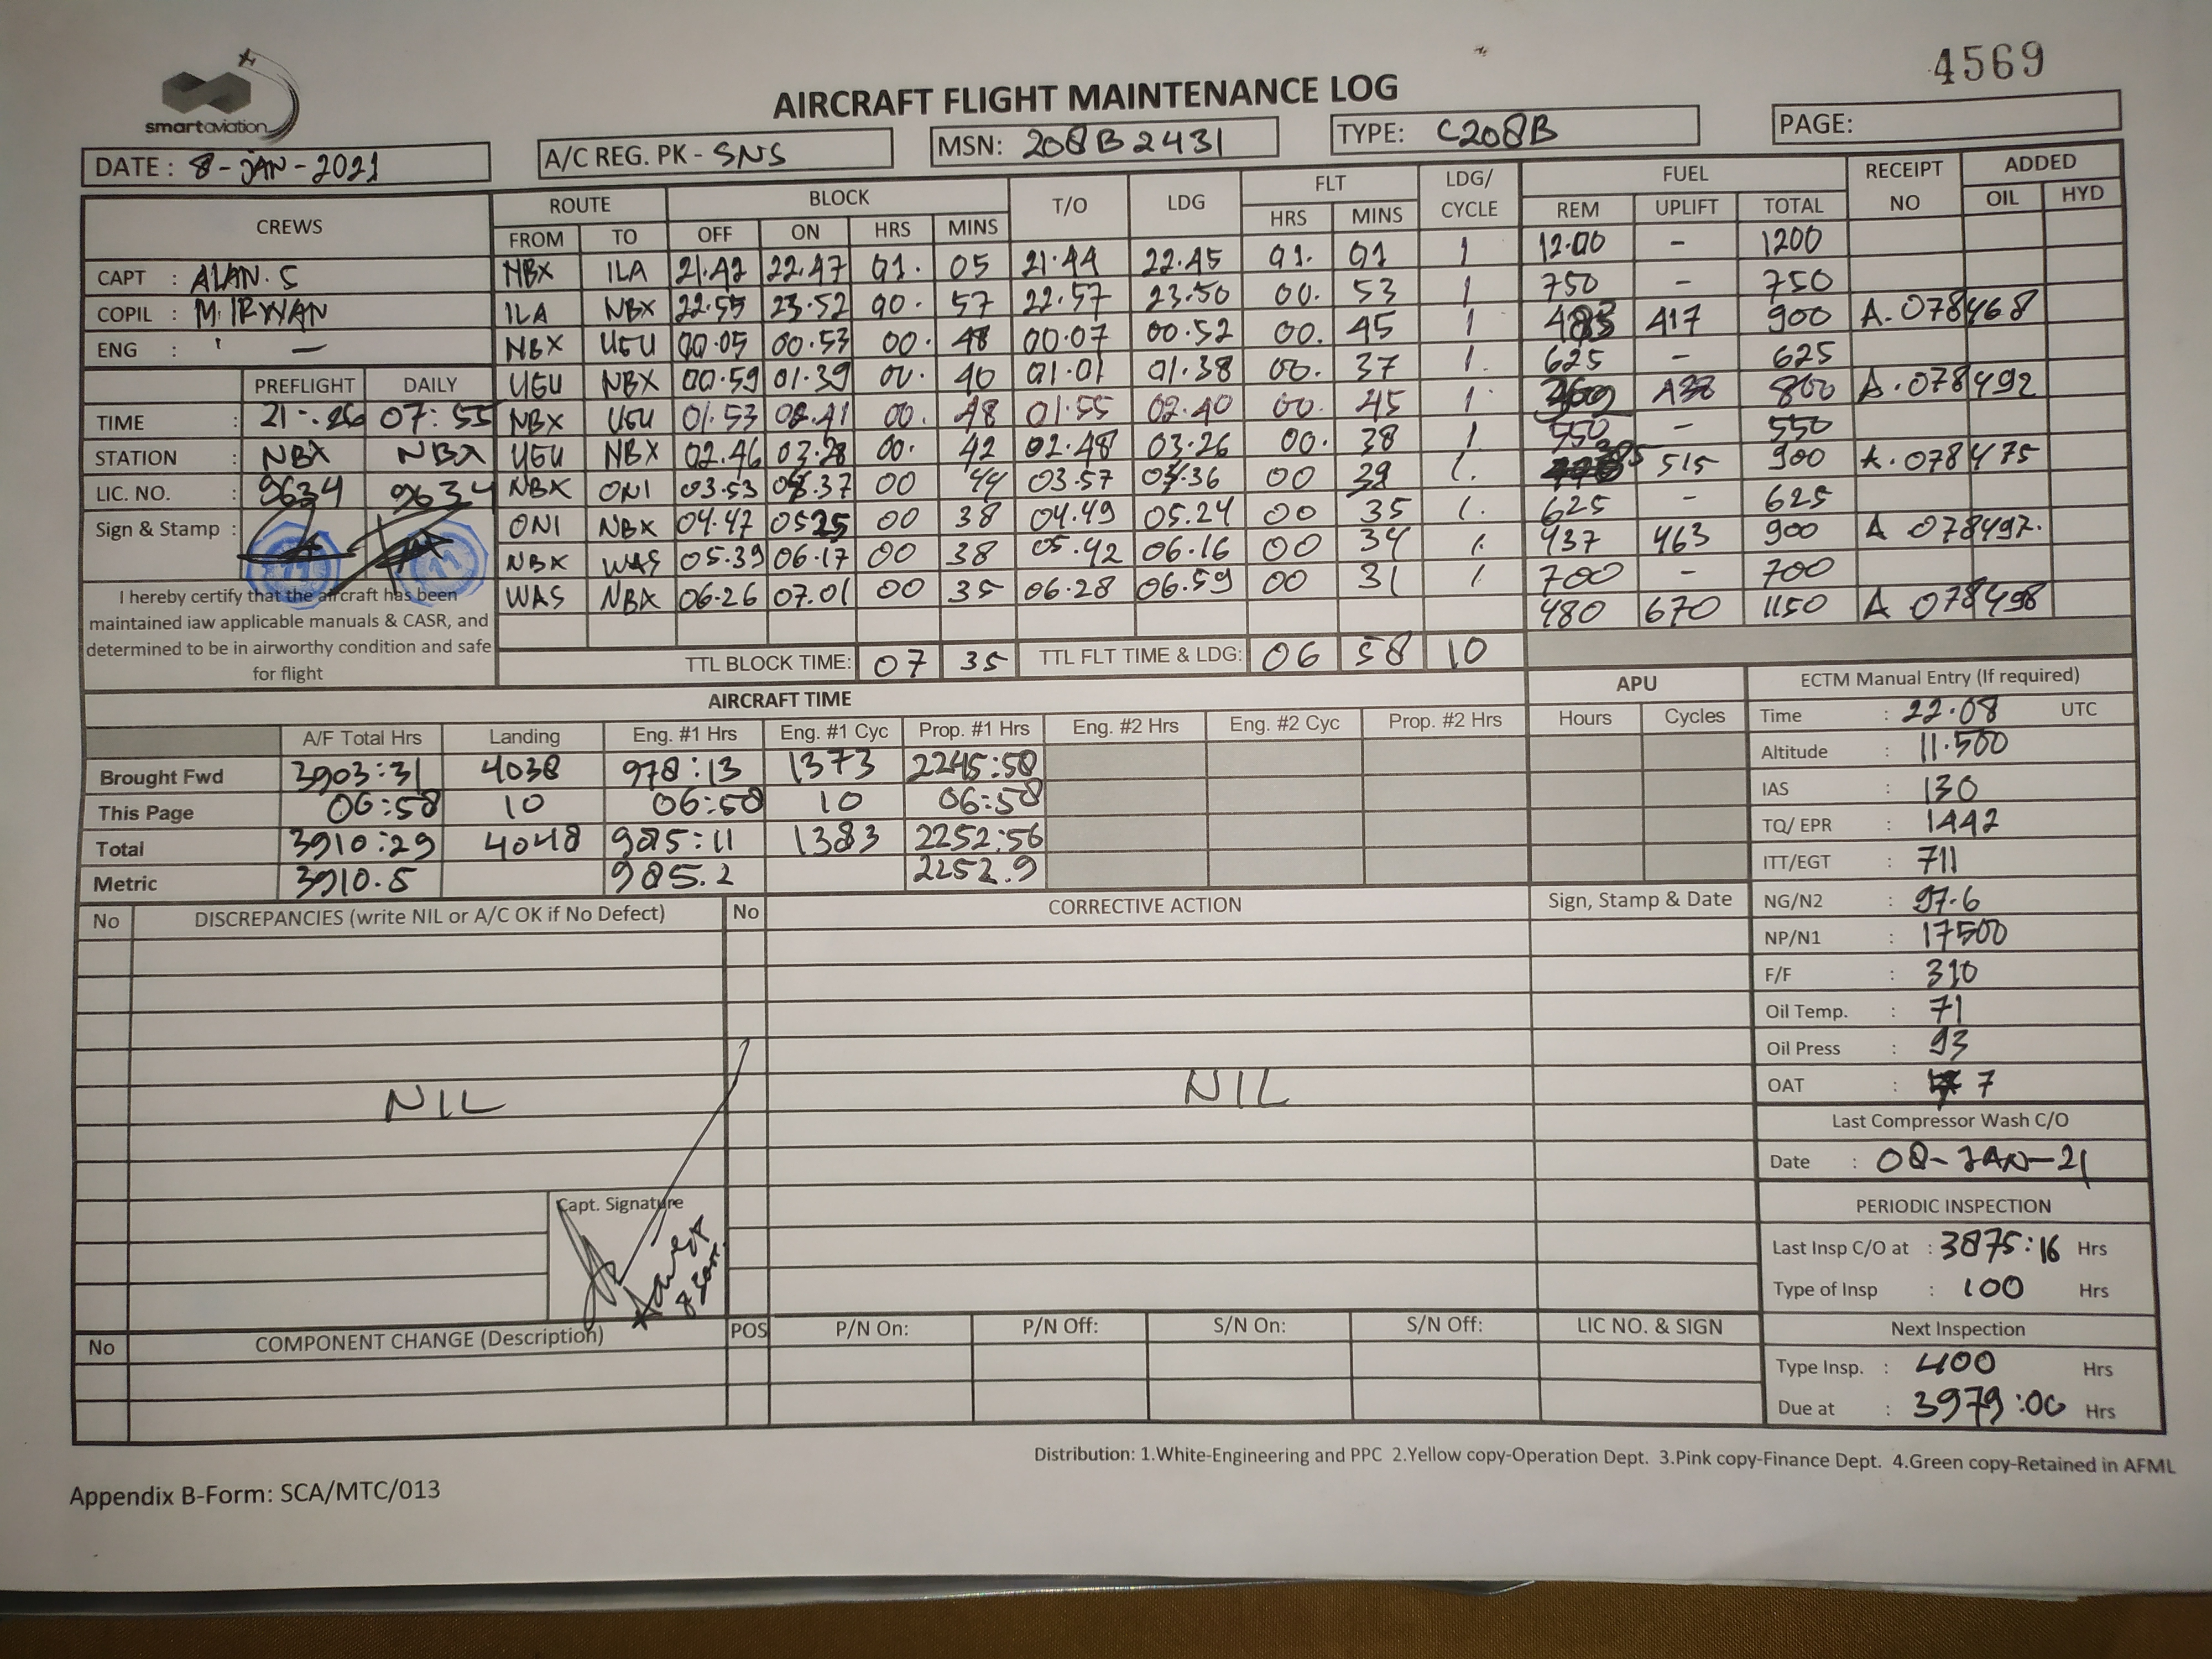 4569
smartaviation
AIRCRAFT FLIGHT MAINTENANCE LOG
DATE : 8-JAN-2021 A/C REG. PK - SNS MSN: 208B2431 TYPE: C208B PAGE:
CREWS ROUTE BLOCK T/O LDG FLT LDG/ CYCLE FUEL RECEIPT NO ADDED
FROM TO OFF ON HRS MINS HRS MINS REM UPLIFT TOTAL OIL HYD
CAPT : ALAN. S
COPIL : M. IRWAN
ENG : —
NBX ILA 21.42 22.47 01. 05 21.44 22.45 01. 01 1 1200 - 1200
ILA NBX 22.55 23.52 00. 57 22.57 23.50 00. 53 1 750 - 750
NBX UGU 00.05 00.53 00. 48 00.07 00.52 00. 45 1 483 417 900 A. 078468
UGU NBX 00.59 01.39 00. 40 01.01 01.38 00. 37 1. 625 - 625
NBX UGU 01.53 02.41 00. 48 01.55 02.40 00. 45 1. 800 A. 078492
UGU NBX 02.46 03.28 00. 42 02.48 03.26 00. 38 1 550 - 550
NBX ONI 03.53 04.37 00 44 03.57 04.36 00 39 1. 385 515 900 A. 078475
ONI NBX 04.47 05.25 00 38 04.49 05.24 00 35 1. 625 - 625
NBX WAS 05.39 06.17 00 38 05.42 06.16 00 34 1. 437 463 900 A 078497.
WAS NBX 06.26 07.01 00 35 06.28 06.59 00 31 1 700 - 700
480 670 1150 A 078498
TTL BLOCK TIME: 07 35 TTL FLT TIME & LDG: 06 58 10
PREFLIGHT DAILY
TIME : 21:26 07:55
STATION : NBX NBX
LIC. NO. : 9634 9634
Sign & Stamp :
11 11
I hereby certify that the aircraft has been
maintained iaw applicable manuals & CASR, and
determined to be in airworthy condition and safe
for flight
AIRCRAFT TIME APU
A/F Total Hrs Landing Eng. #1 Hrs Eng. #1 Cyc Prop. #1 Hrs Eng. #2 Hrs Eng. #2 Cyc Prop. #2 Hrs Hours Cycles
Brought Fwd 3903:31 4038 978:13 1373 2245:58
This Page 06:58 10 06:58 10 06:58
Total 3910:29 4048 985:11 1383 2252:56
Metric 3910.5 985.2 2252.9
ECTM Manual Entry (If required)
Time : 22.08 UTC
Altitude : 11.500
IAS : 130
TQ/ EPR : 1442
ITT/EGT : 711
NG/N2 : 97.6
NP/N1 : 17500
F/F : 310
Oil Temp. : 71
Oil Press : 93
OAT : 7
Last Compressor Wash C/O
Date : 08-JAN-21
PERIODIC INSPECTION
Last Insp C/O at : 3875:16 Hrs
Type of Insp : 100 Hrs
Next Inspection
Type Insp. : 400 Hrs
Due at : 3979:00 Hrs
No DISCREPANCIES (write NIL or A/C OK if No Defect) No CORRECTIVE ACTION Sign, Stamp & Date
NIL NIL
Capt. Signature
No COMPONENT CHANGE (Description) POS P/N On: P/N Off: S/N On: S/N Off: LIC NO. & SIGN
Distribution: 1.White-Engineering and PPC 2.Yellow copy-Operation Dept. 3.Pink copy-Finance Dept. 4.Green copy-Retained in AFML
Appendix B-Form: SCA/MTC/013